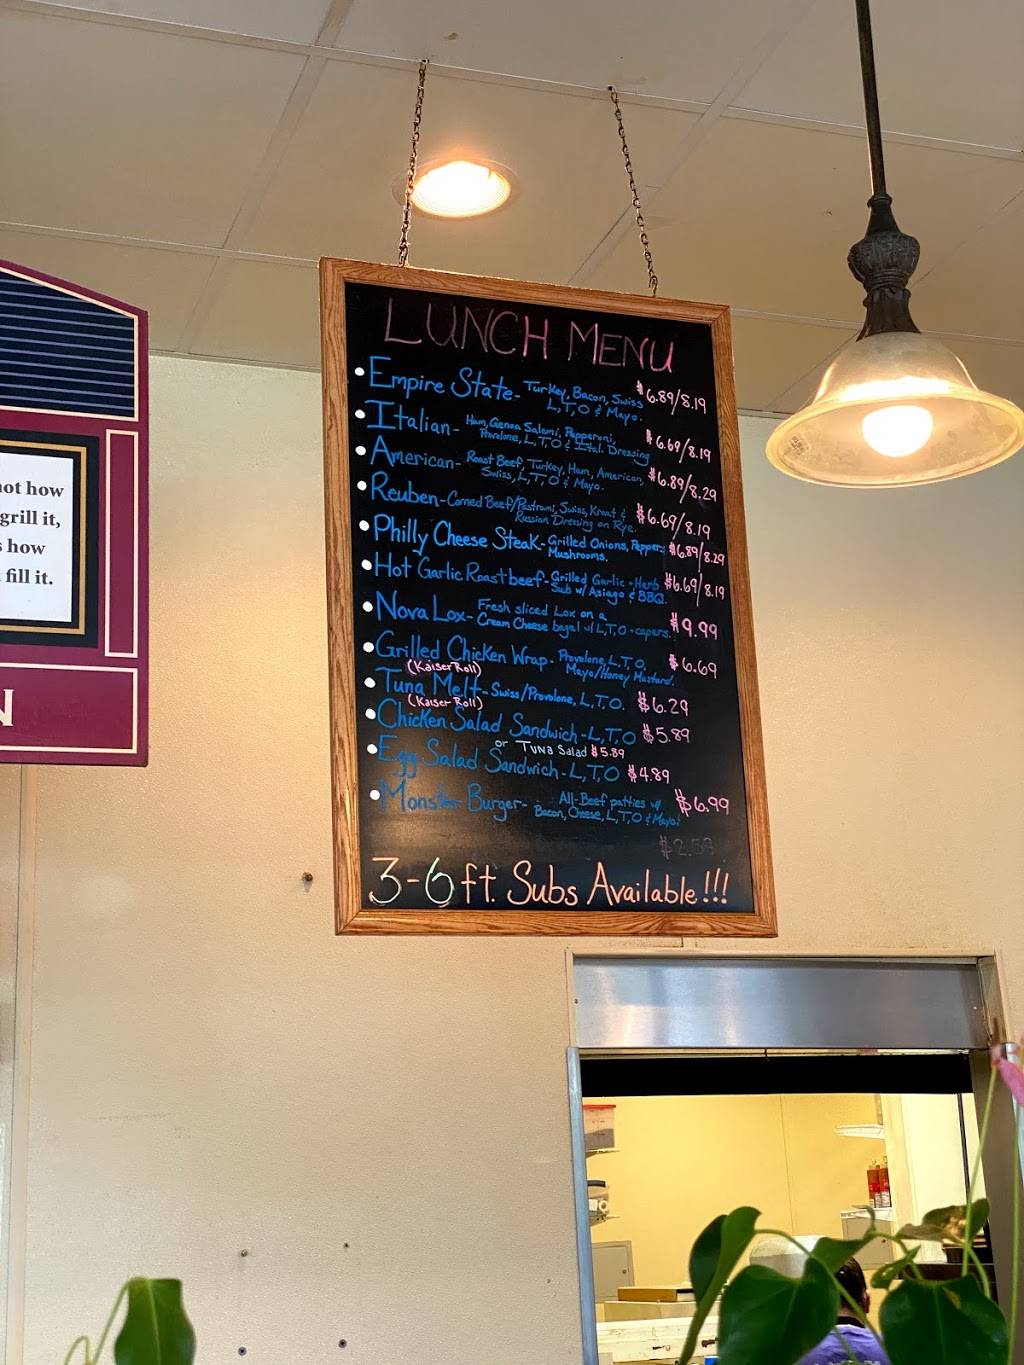 LUNCH MENU
Empire State - Turkey, Bacon, Swiss $6.89/8.19
L, T, O & Mayo.
Italian - Ham, Genoa Salami, Pepperoni, $6.69/8.19
Provolone, L, T, O & Ital. Dressing
American - Roast Beef, Turkey, Ham, American, $6.89/8.29
Swiss, L, T, O & Mayo.
Reuben - Corned Beef/Pastrami, Swiss, Kraut & $6.69/8.19
Russian Dressing on Rye.
Philly Cheese Steak - Grilled Onions, Peppers $6.89/8.29
Mushrooms.
Hot Garlic Roast beef - Grilled Garlic + Herb $6.69/8.19
Sub w/ Asiago & BBQ.
Nova Lox - Fresh sliced Lox on a $9.99
Cream Cheese bagel w/ L, T, O + capers.
Grilled Chicken Wrap - Provolone, L, T, O, $6.69
(Kaiser Roll) Mayo/Honey Mustard.
Tuna Melt - Swiss/Provolone, L, T, O. $6.29
(Kaiser Roll)
Chicken Salad Sandwich - L, T, O $5.89
or Tuna Salad $5.89
Egg Salad Sandwich - L, T, O $4.89
Monster Burger - All-Beef patties w/ $6.99
Bacon, Cheese, L, T, O & Mayo.
$2.59
3-6 ft. Subs Available!!!
not how
grill it,
s how
fill it.
N